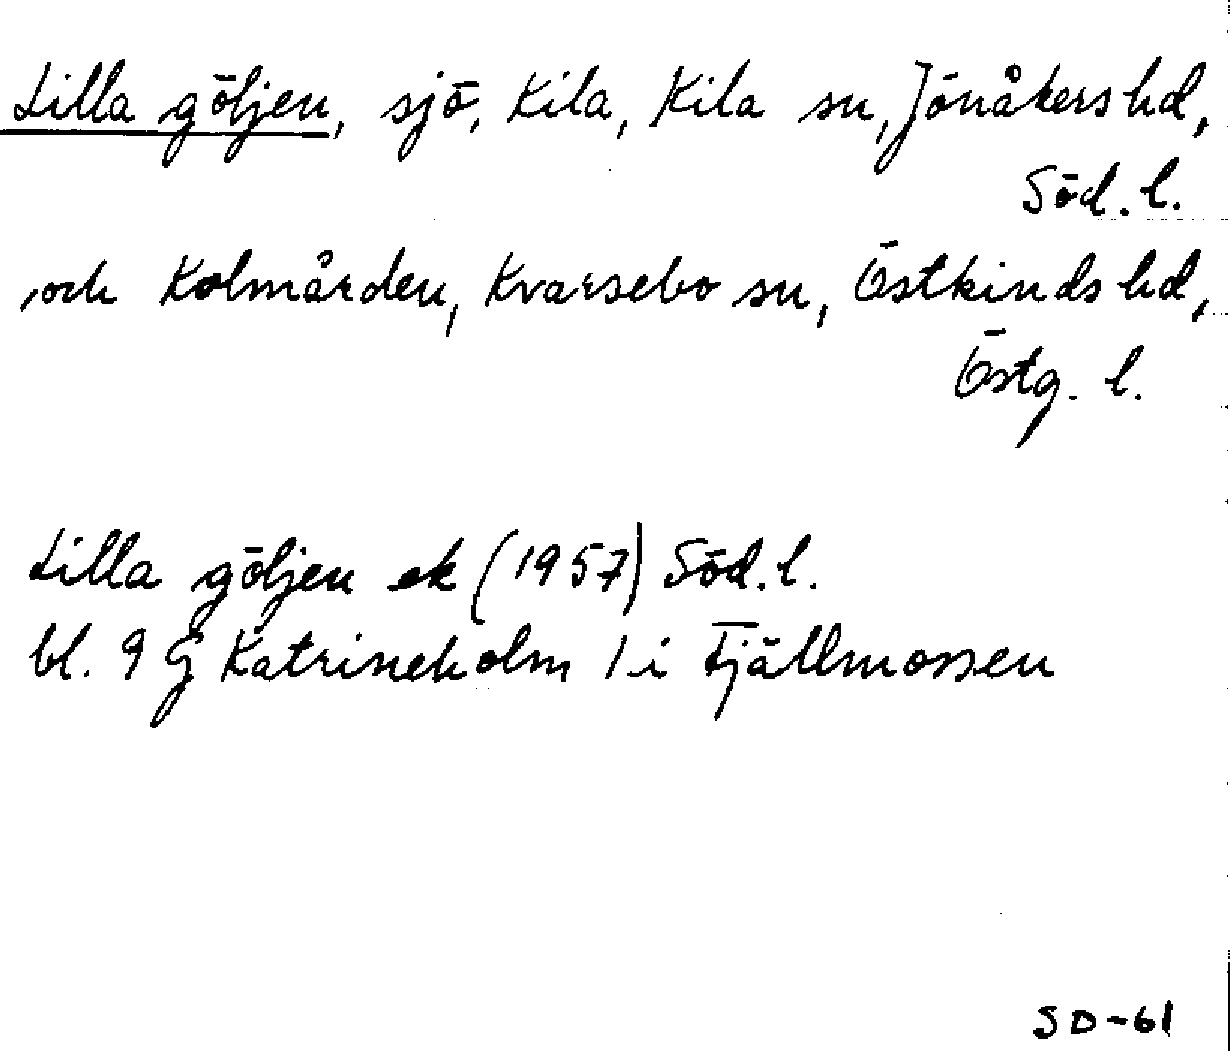 Lilla göljen, sjö, Kila, Kila sn, Jönåkers hd,
Söd. l.
och Kolmården, Kvarsebo sn, Östkinds hd,
Östg. l.
Lilla göljen ek (1957) Söd. l.
bl. 9 G Katrineholm 1 i Fjällmossen
SD-61